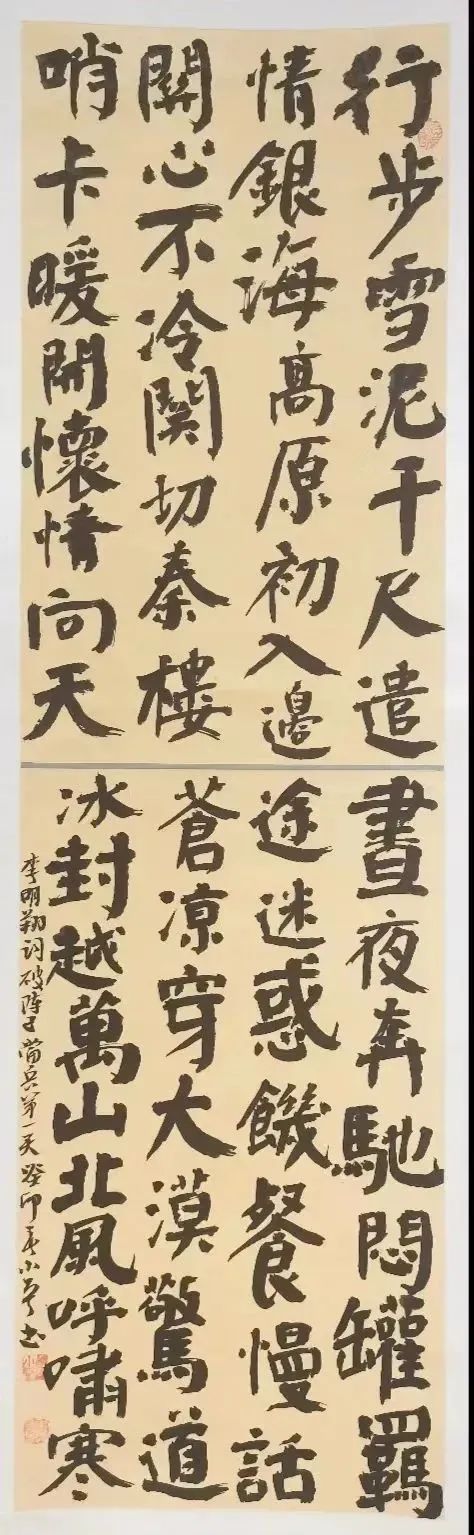 行步雪泥千尺遣
情銀海高原初入邊
關心不冷関切秦樓
哨卡暖開懷情向天
晝夜奔馳悶罐羈
途迷惑饑餐慢話
蒼凉穿大漠驚道
冰封越萬山北風呼嘯寒
李明翔词破阵子當兵第一天癸卯小书